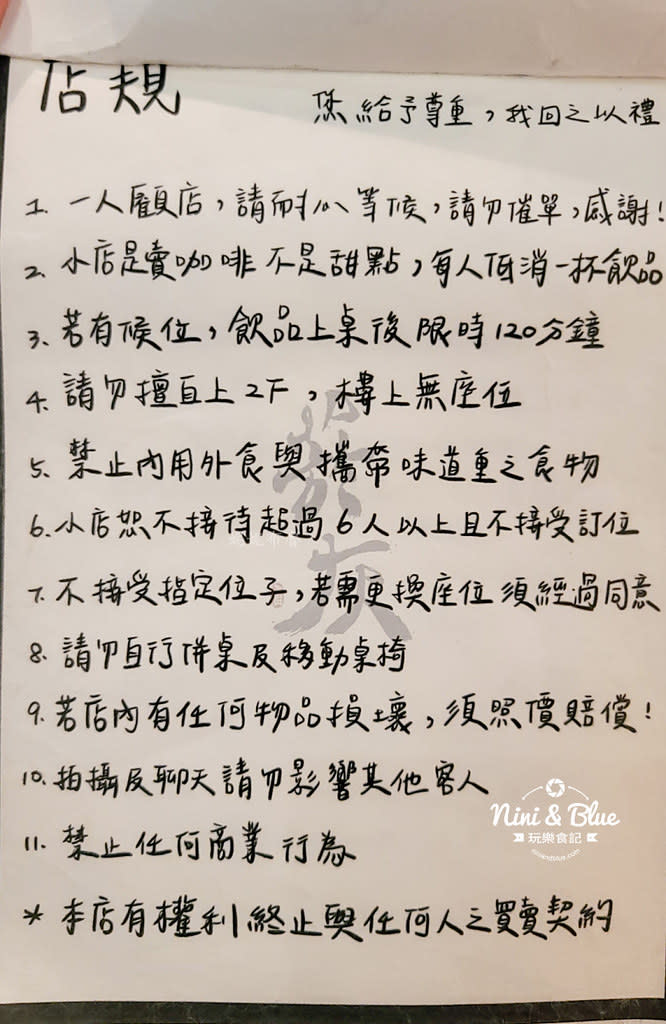 店規
您給予尊重，我回之以禮
1. 一人顧店，請耐心等候，請勿催單，感謝！
2. 小店是賣咖啡不是甜點，每人低消一杯飲品
3. 若有候位，飲品上桌後限時120分鐘
4. 請勿擅自上2F，樓上無座位
5. 禁止內用外食與攜帶味道重之食物
6. 小店恕不接待超過6人以上且不接受訂位
7. 不接受指定位子，若需更換座位須經過同意
8. 請勿自行併桌及移動桌椅
9. 若店內有任何物品損壞，須照價賠償！
10. 拍攝及聊天請勿影響其他客人
Nini & Blue
玩樂食記
niniandblue.com
11. 禁止任何商業行為
* 本店有權利終止與任何人之買賣契約